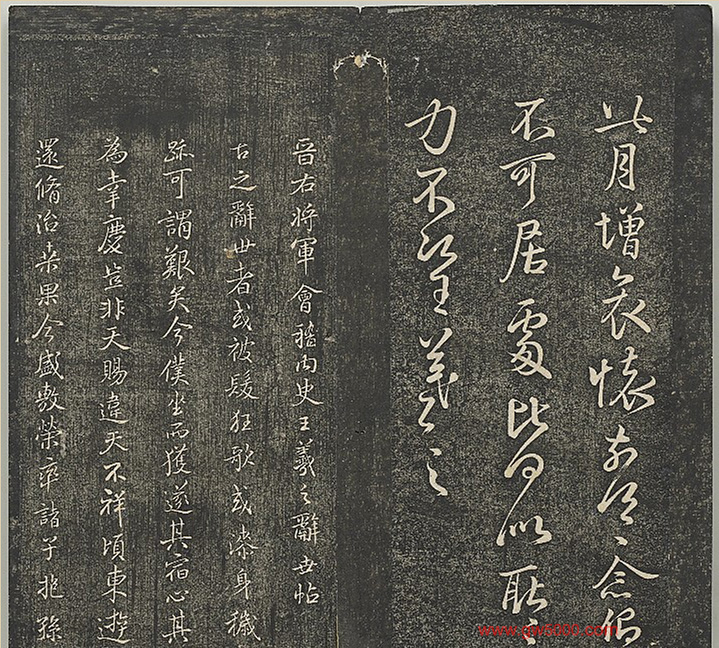 此月增哀懷前至念
不可居處比何似耿
力不次王羲之
晉右將軍會稽內史王羲之辭世帖
古之辭世者或被髮狂歌或漆身穢
跡可謂艱矣今僕坐而獲逸遂其宿心其
為幸慶豈非天賜違天不祥頃東遊
還脩治桑果今盛敷榮率諸子抱孫
www.gw5000.com